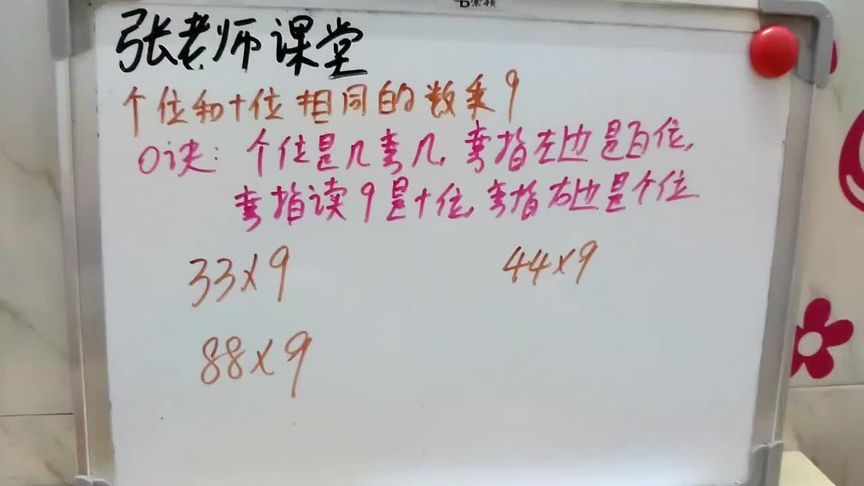 张老师课堂
个位和十位相同的数乘9
口诀:个位是几弯几,弯指左边是百位,
弯指读9是十位,弯指右边是个位
33×9 44×9
88×9